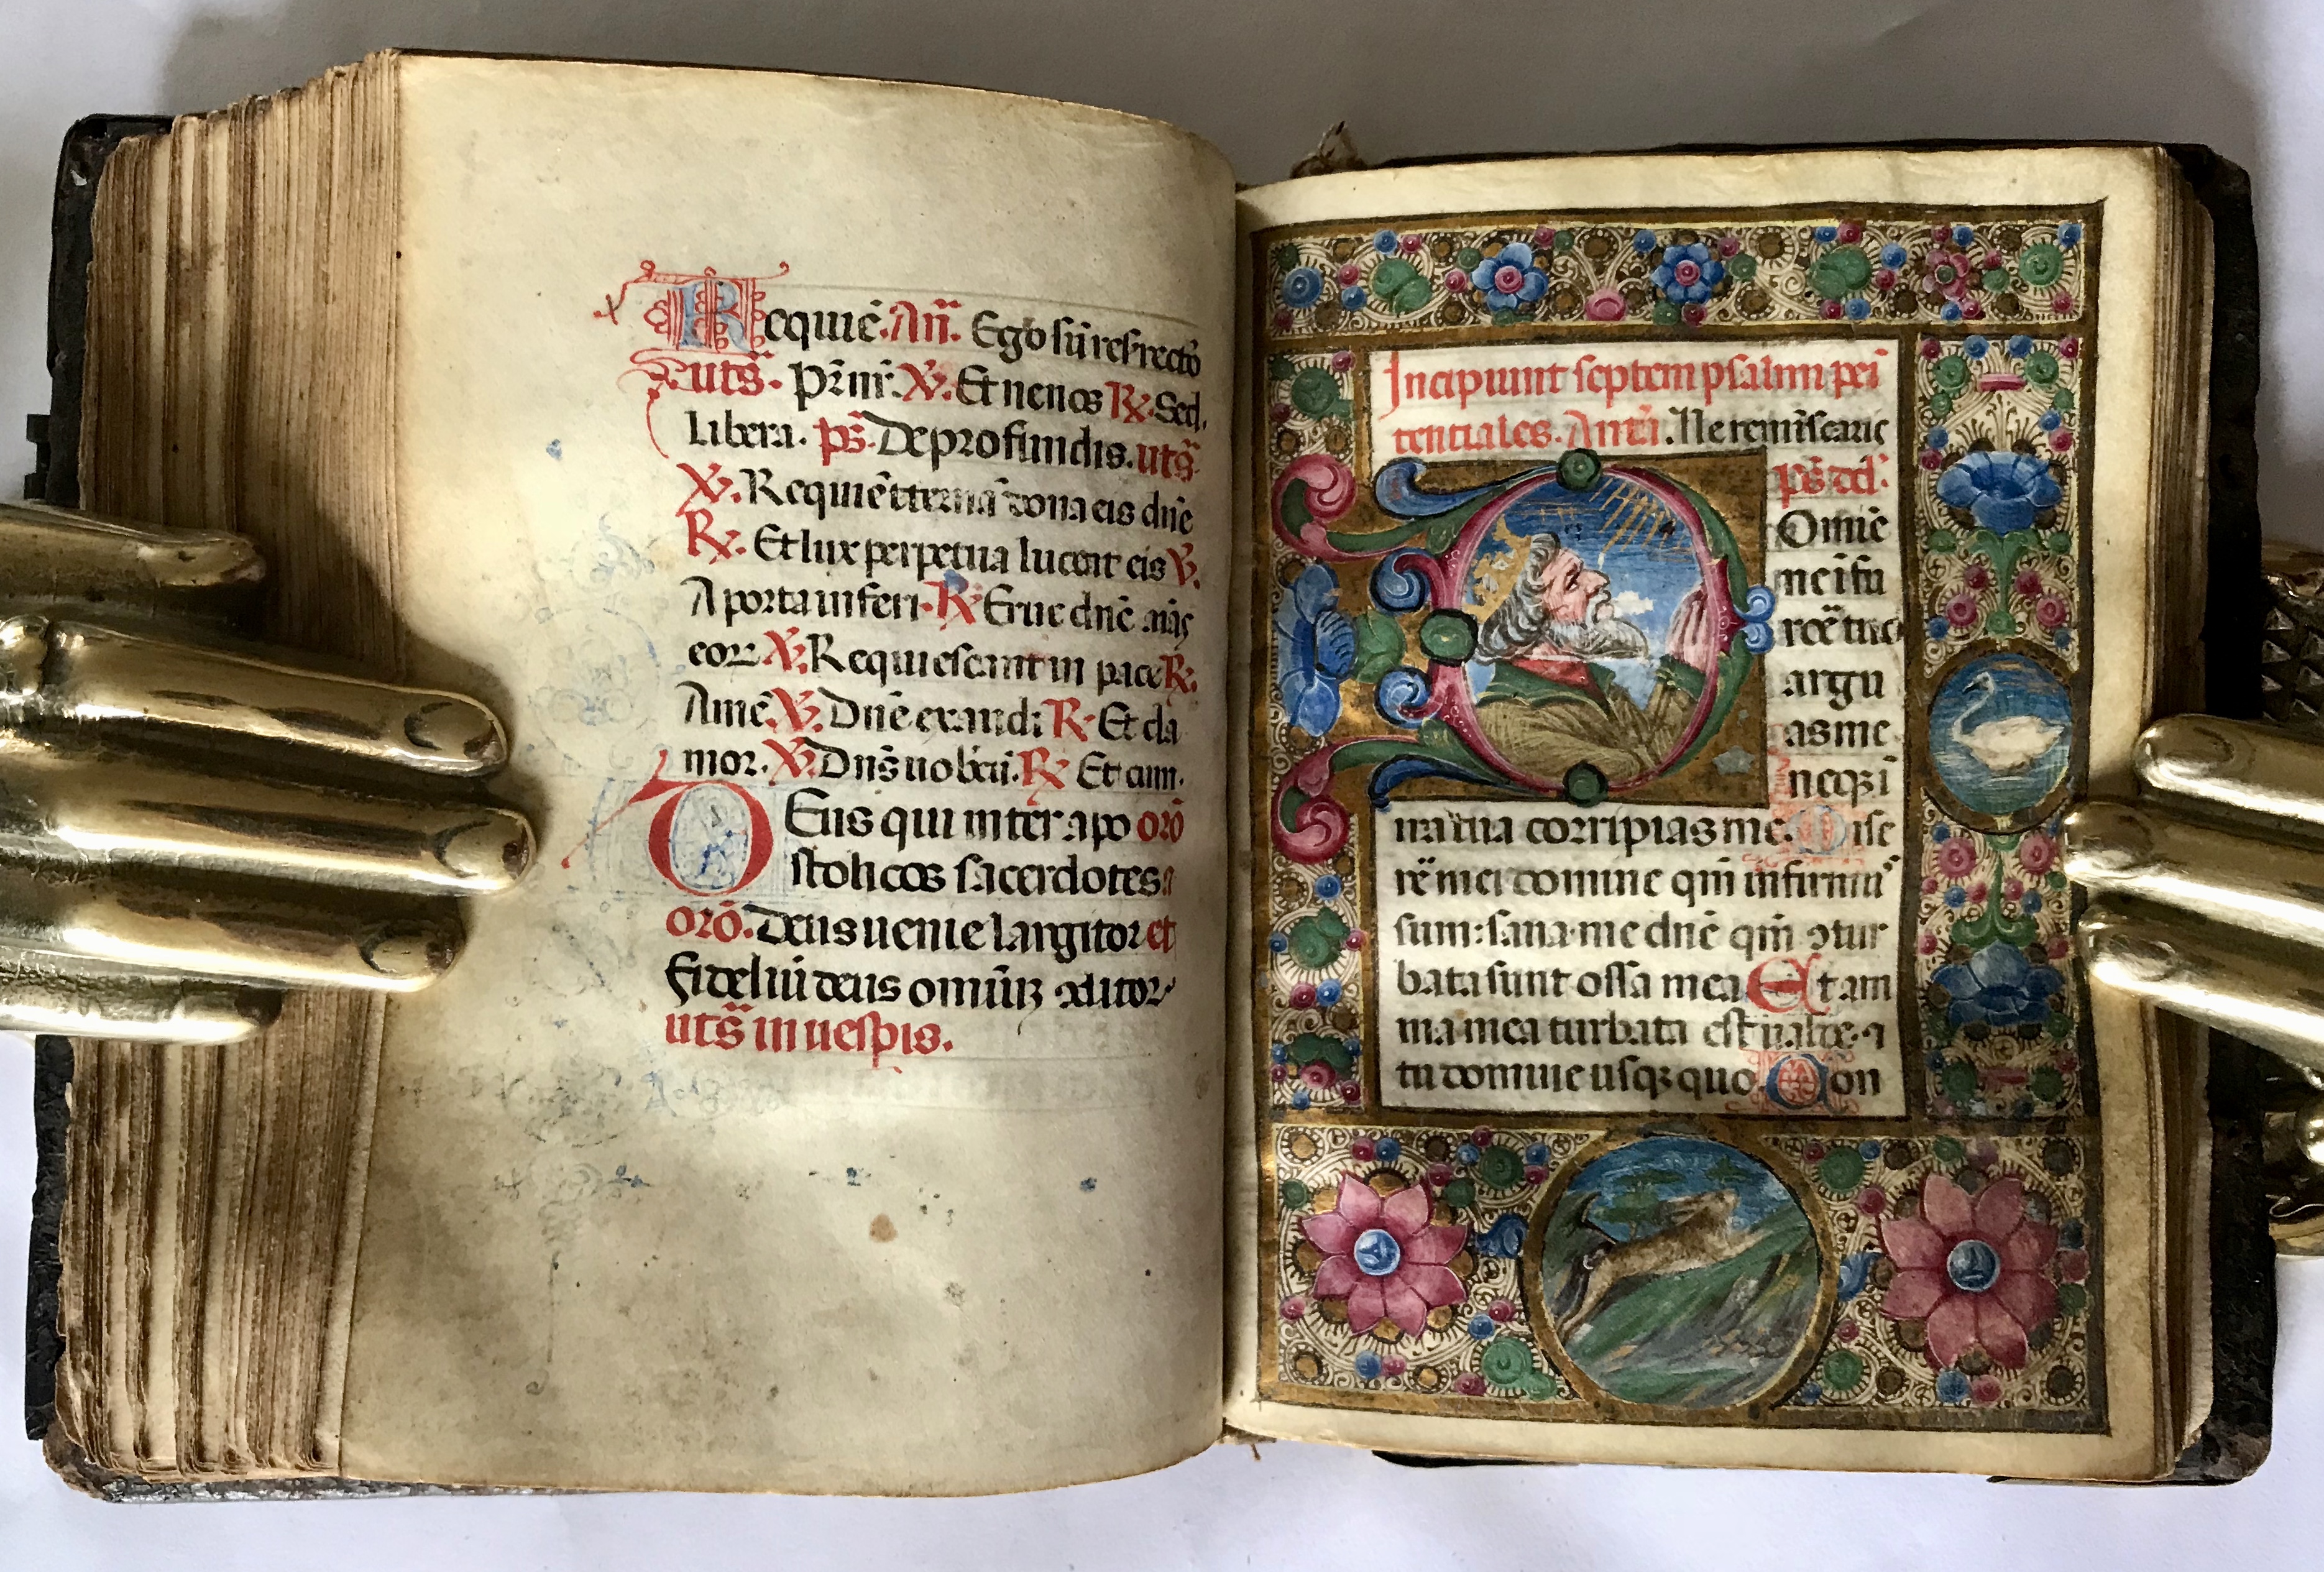 Requiē. An̄. Ego sū resrectō
uts̄. Pr̄ nr̄. V. Et ne nos R. Sed.
Libera. ps̄. De profundis. uts̄
V. Requiē eternā dona eis dn̄e
R. Et lux perpetua luceat eis V.
A porta inferi. R. Erue dn̄e aīas
eoꝝ V. Requiescant in pace R.
Amē. V. Dn̄e exaudi R. Et cla
mor. V. Dn̄s uobiscū. R. Et cum.
DEus qui inter apo orō
stolicos sacerdotes.
orō. Deus uenie largitor et
Fideliū deus omniū ↄditor
uts̄ in uesp̄is.
Incipiunt septem psalmi peī
tentiales. Antī. Ne reminiscaris
ps̄ dd̄.
Domīe
ne ī fu
rore tuo
arguas
as me
neqꝫ ī
ira tua corripias me. Mise
rēre mei domine qm̄ infirmus
sum: sana me dn̄e qm̄ ↄtur
bata sunt ossa mea Et ani
ma mea turbata est ualde. ⁊
tu domine usqꝫ quo. Con